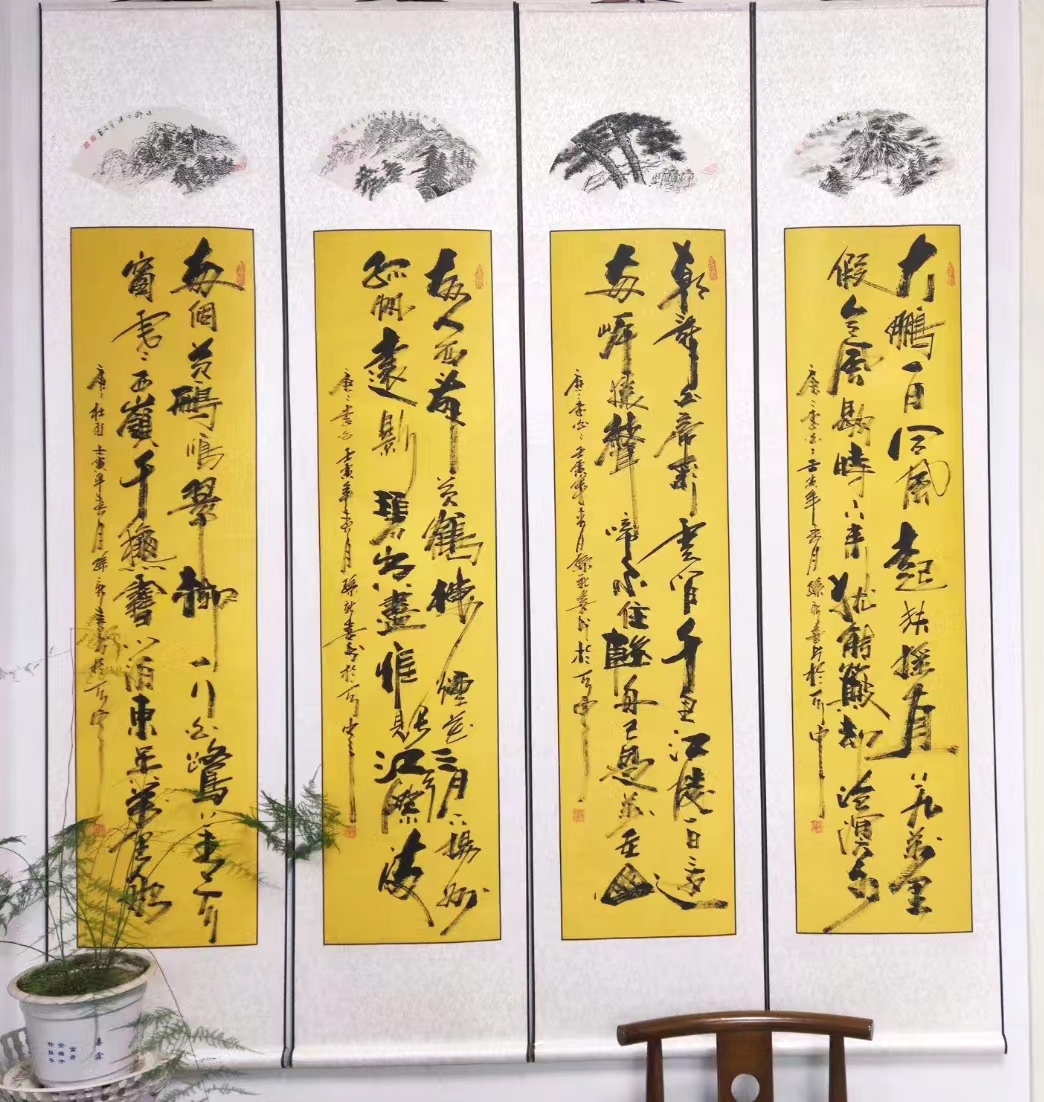 大鵬一日同風起扶摇直上九萬里
假令風歇時下来猶能簸却沧溟水
唐李白壬寅年春月
朝辞白帝彩雲間千里江陵一日還
两岸猿聲啼不住輕舟已過萬重山
唐李白壬寅年春月
故人西辞黄鶴樓煙花三月下揚州
孤帆遠影碧空盡惟見長江天際流
唐李白壬寅年春月
两個黄鸝鳴翠柳一行白鷺上青天
窗含西嶺千秋雪门泊東吴萬里船
唐杜甫壬寅年春月